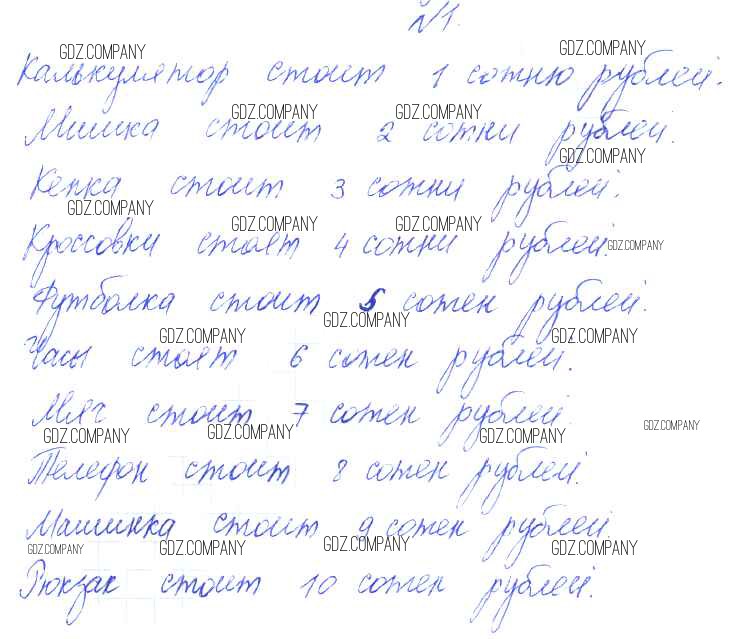 №1.
GDZ.COMPANY GDZ.COMPANY
Калькулятор стоит 1 сотню рублей.
GDZ.COMPANY GDZ.COMPANY
Мишка стоит 2 сотни рублей.
GDZ.COMPANY
Кепка стоит 3 сотни рублей.
GDZ.COMPANY GDZ.COMPANY GDZ.COMPANY
Кроссовки стоят 4 сотни рублей.
GDZ.COMPANY
Футболка стоит 5 сотен рублей.
GDZ.COMPANY GDZ.COMPANY GDZ.COMPANY
Часы стоят 6 сотен рублей.
Мяч стоит 7 сотен рублей.
GDZ.COMPANY GDZ.COMPANY GDZ.COMPANY GDZ.COMPANY
Телефон стоит 8 сотен рублей.
Машинка стоит 9 сотен рублей.
GDZ.COMPANY GDZ.COMPANY GDZ.COMPANY GDZ.COMPANY
Рюкзак стоит 10 сотен рублей.